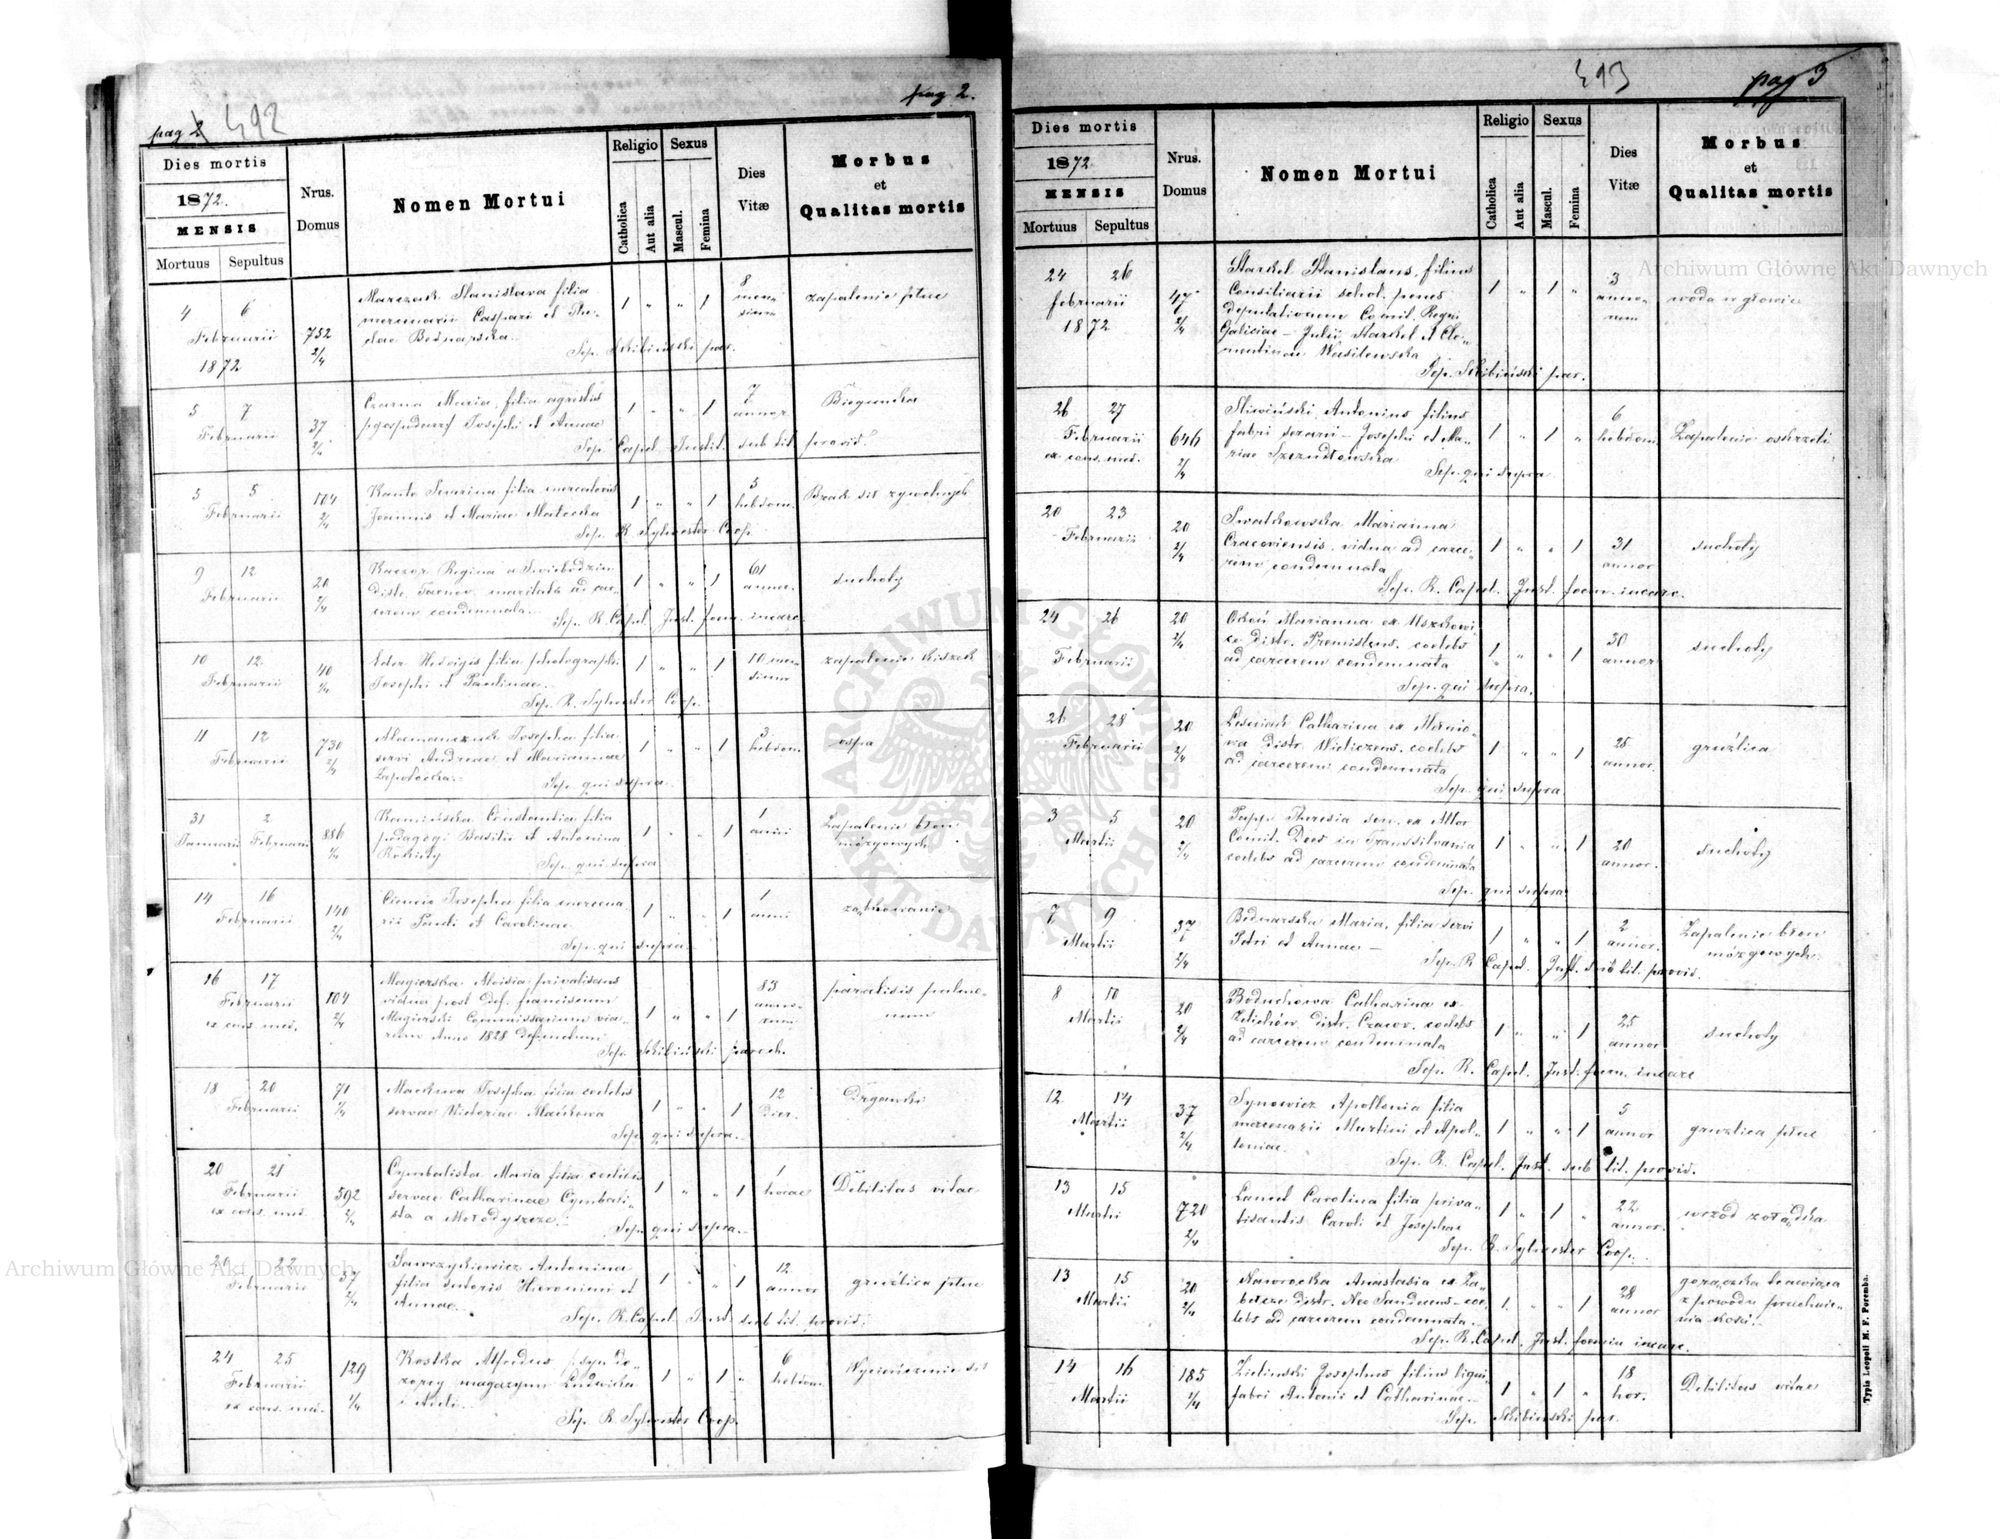 pag 2 492
pag 2.
Dies mortis
1872.
MENSIS
Mortuus Sepultus
Nrus. Domus
Nomen Mortui
Religio
Catholica
Aut alia
Sexus
Mascul.
Femina
Dies Vitæ
Morbus
et
Qualitas mortis
4 6
Februarii
1872
752
2/4
Marczak Stanisława filia
mercenarii Caspari et
Bednarska
Sep. Skibiński par.
1 " " 1
8
men
sium
zapalenie płuc
5 7
Februarii
37
2/4
Czarna Maria, filia agricolae
Josephi et Annae
Sep. Capel. Instit. sub tit. provid.
1 " " 1
7
annor
Biegunka
5
Februarii
104
2/4
Kanto Severina filia mercatoris
Joannis et Mariae Matecka
Sep. R. Sylwester Coop.
1 " " 1
hebdom.
Brak sił żywotnych
9 12
Februarii
20
2/4
Kaczor Regina a Swiebodzin
distr. Tarnov. maritata ad car-
cerem condemnata
Sep. R. Capel. Inst. foem. incarc.
1 " " 1
61
annor.
suchoty
10 12
Februarii
40
2/4
Eder Hedvigis filia photographi
Josephi et Paulinae
Sep. R. Sylwester Coop.
1 " " 1
10 men
sium
zapalenie kiszek
11 12
Februarii
730
2/4
Josepha filia
servi Andreae et Mariannae
Sep. qui supra
1 " " 1
3
hebdom
ospa
31 2
Januarii Februarii
886
2/4
Kamińska Constantia filia
pedagogi Basilii et Antonina
Rokicky
Sep. qui supra
1 " " 1
1
anni
Zapalenie błon
mózgowych
14 16
Februarii
140
2/4
Josepha filia mercena-
rii Pauli et Carolinae
Sep. qui supra
1 " " 1
1
anni
16 17
Februarii
ex cons. med.
104
2/4
Magierska Aloisia privatisans
vidua post Def. franciscum
Magierski Commissarium via-
rum Anno 1828 Defunctum
Sep. Skibiński paroch.
1 " " 1
83
anno-
rum
paralisis pulmo-
num
18 20
Februarii
71
2/4
Mackiwa Josepha filia coelebs
servae Victoriae Maćkowa
Sep. qui supra
1 " " 1
12
Dier.
Drgawki
20 21
Februarii
ex cons. med.
592
2/4
Cymbalista Maria filia coelibis
servae Catharinae Cymbali-
sta a Mołodyszcze
Sep. qui supra
1 " " 1
1
horae
Debilitas vitae
20 22
Februarii
37
2/4
Sawczykiewicz Antonina
filia sutoris Hieronimi et
Annae
Sep. R. Capel. Inst. sub tit. provid.
1 " " 1
12
annor
gruźlica płuc
24 25
Februarii
ex cons. med.
129
2/4
Kostka Alfredus syn do-
zorcy magazynu Ludwika
i Adeli
Sep. R. Sylwester Coop.
1 " 1 "
6
hebdom.
Wycieńczenie sił
493
pag 3
Dies mortis
1872.
MENSIS
Mortuus Sepultus
Nrus. Domus
Nomen Mortui
Religio
Catholica
Aut alia
Sexus
Mascul.
Femina
Dies Vitæ
Morbus
et
Qualitas mortis
24 26
februarii
1872
47
2/4
Starkel Stanislaus, filius
Consiliarii schol. penes
deputationem Comit. Regni
Galiciae – Julii Starkel et Cle-
mentinae Wasilewska
Sep. Skibiński par.
1 " 1 "
3
anno-
rum
woda w głowie
26 27
Februarii
ex cons. med.
646
2/4
Sliwiński Antonius filius
fabri serarii – Josephi et Ma-
riae Szczudłowska
Sep. qui supra
1 " 1 "
6
hebdom.
Zapalenie oskrzeli
20 23
Februarii
20
2/4
Swatkowska Marianna
Cracoviensis, vidua ad carce-
rem condemnata
Sep. R. Capel. Inst. foem. incarc.
1 " " 1
31
annor
suchoty
24 26
Februarii
20
2/4
Marianna ex
distr. Premislens. coelebs
ad carcerem condemnata
Sep. qui supra.
1 " " 1
30
annor
suchoty
26 28
Februarii
20
2/4
Lesniak Catharina ex
distr. Wieliczens. coelebs
ad carcerem condemnata
Sep. qui supra
1 " " 1
25
annor.
gruźlica
3 5
Martii
20
2/4
Papp Theresia ex
Comit. Dees in Transsilvania
coelebs ad carcerem condemnata
Sep. qui supra
1 " " 1
20
annor.
suchoty
7 9
Martii
37
2/4
Bednarska Maria, filia servi
Petri et Annae
Sep. R. Capel. Inst. sub tit. provid.
1 " " 1
2
annor.
Zapalenie błon
mózgowych
8 10
Martii
20
2/4
Boduchowa Catharina ex
distr. Cracov. coelebs
ad carcerem condemnata
Sep. R. Capel. Inst. foem. incarc
1 " " 1
25
annor
suchoty
12 14
Martii
37
2/4
Synowicz Apollonia filia
mercenarii Martini et Apol-
loniae
Sep. R. Capel. Inst. sub tit. provid.
1 " " 1
5
annor
gruźlica płuc
13 15
Martii
720
2/4
Carolina filia priva-
tisantis Caroli et Josephae
Sep. R. Sylwester Coop.
1 " 1 "
22
annor.
wrzód żołądka
13 15
Martii
20
2/4
Nawrocka Anastasia ex
distr. Neo Sandecens – coe-
lebs ad carcerem condemnata.
Sep. R. Capel. Inst. foemin incarc.
1 " " 1
28
annor
gorączka trawiąca
z powodu pruchnie-
nia kości
14 16
Martii
185
2/4
Zielinski Josephus filius ligni-
fabri Antonii et Catharinae
Sep. Skibinski par.
1 " 1 "
18
hor.
Debilitas vitae
Typis Leopoli M. F. Poremba.
Archiwum Główne Akt Dawnych
Archiwum Główne Akt Dawnych
ARCHIWUM GŁÓWNE
AKT DAWNYCH